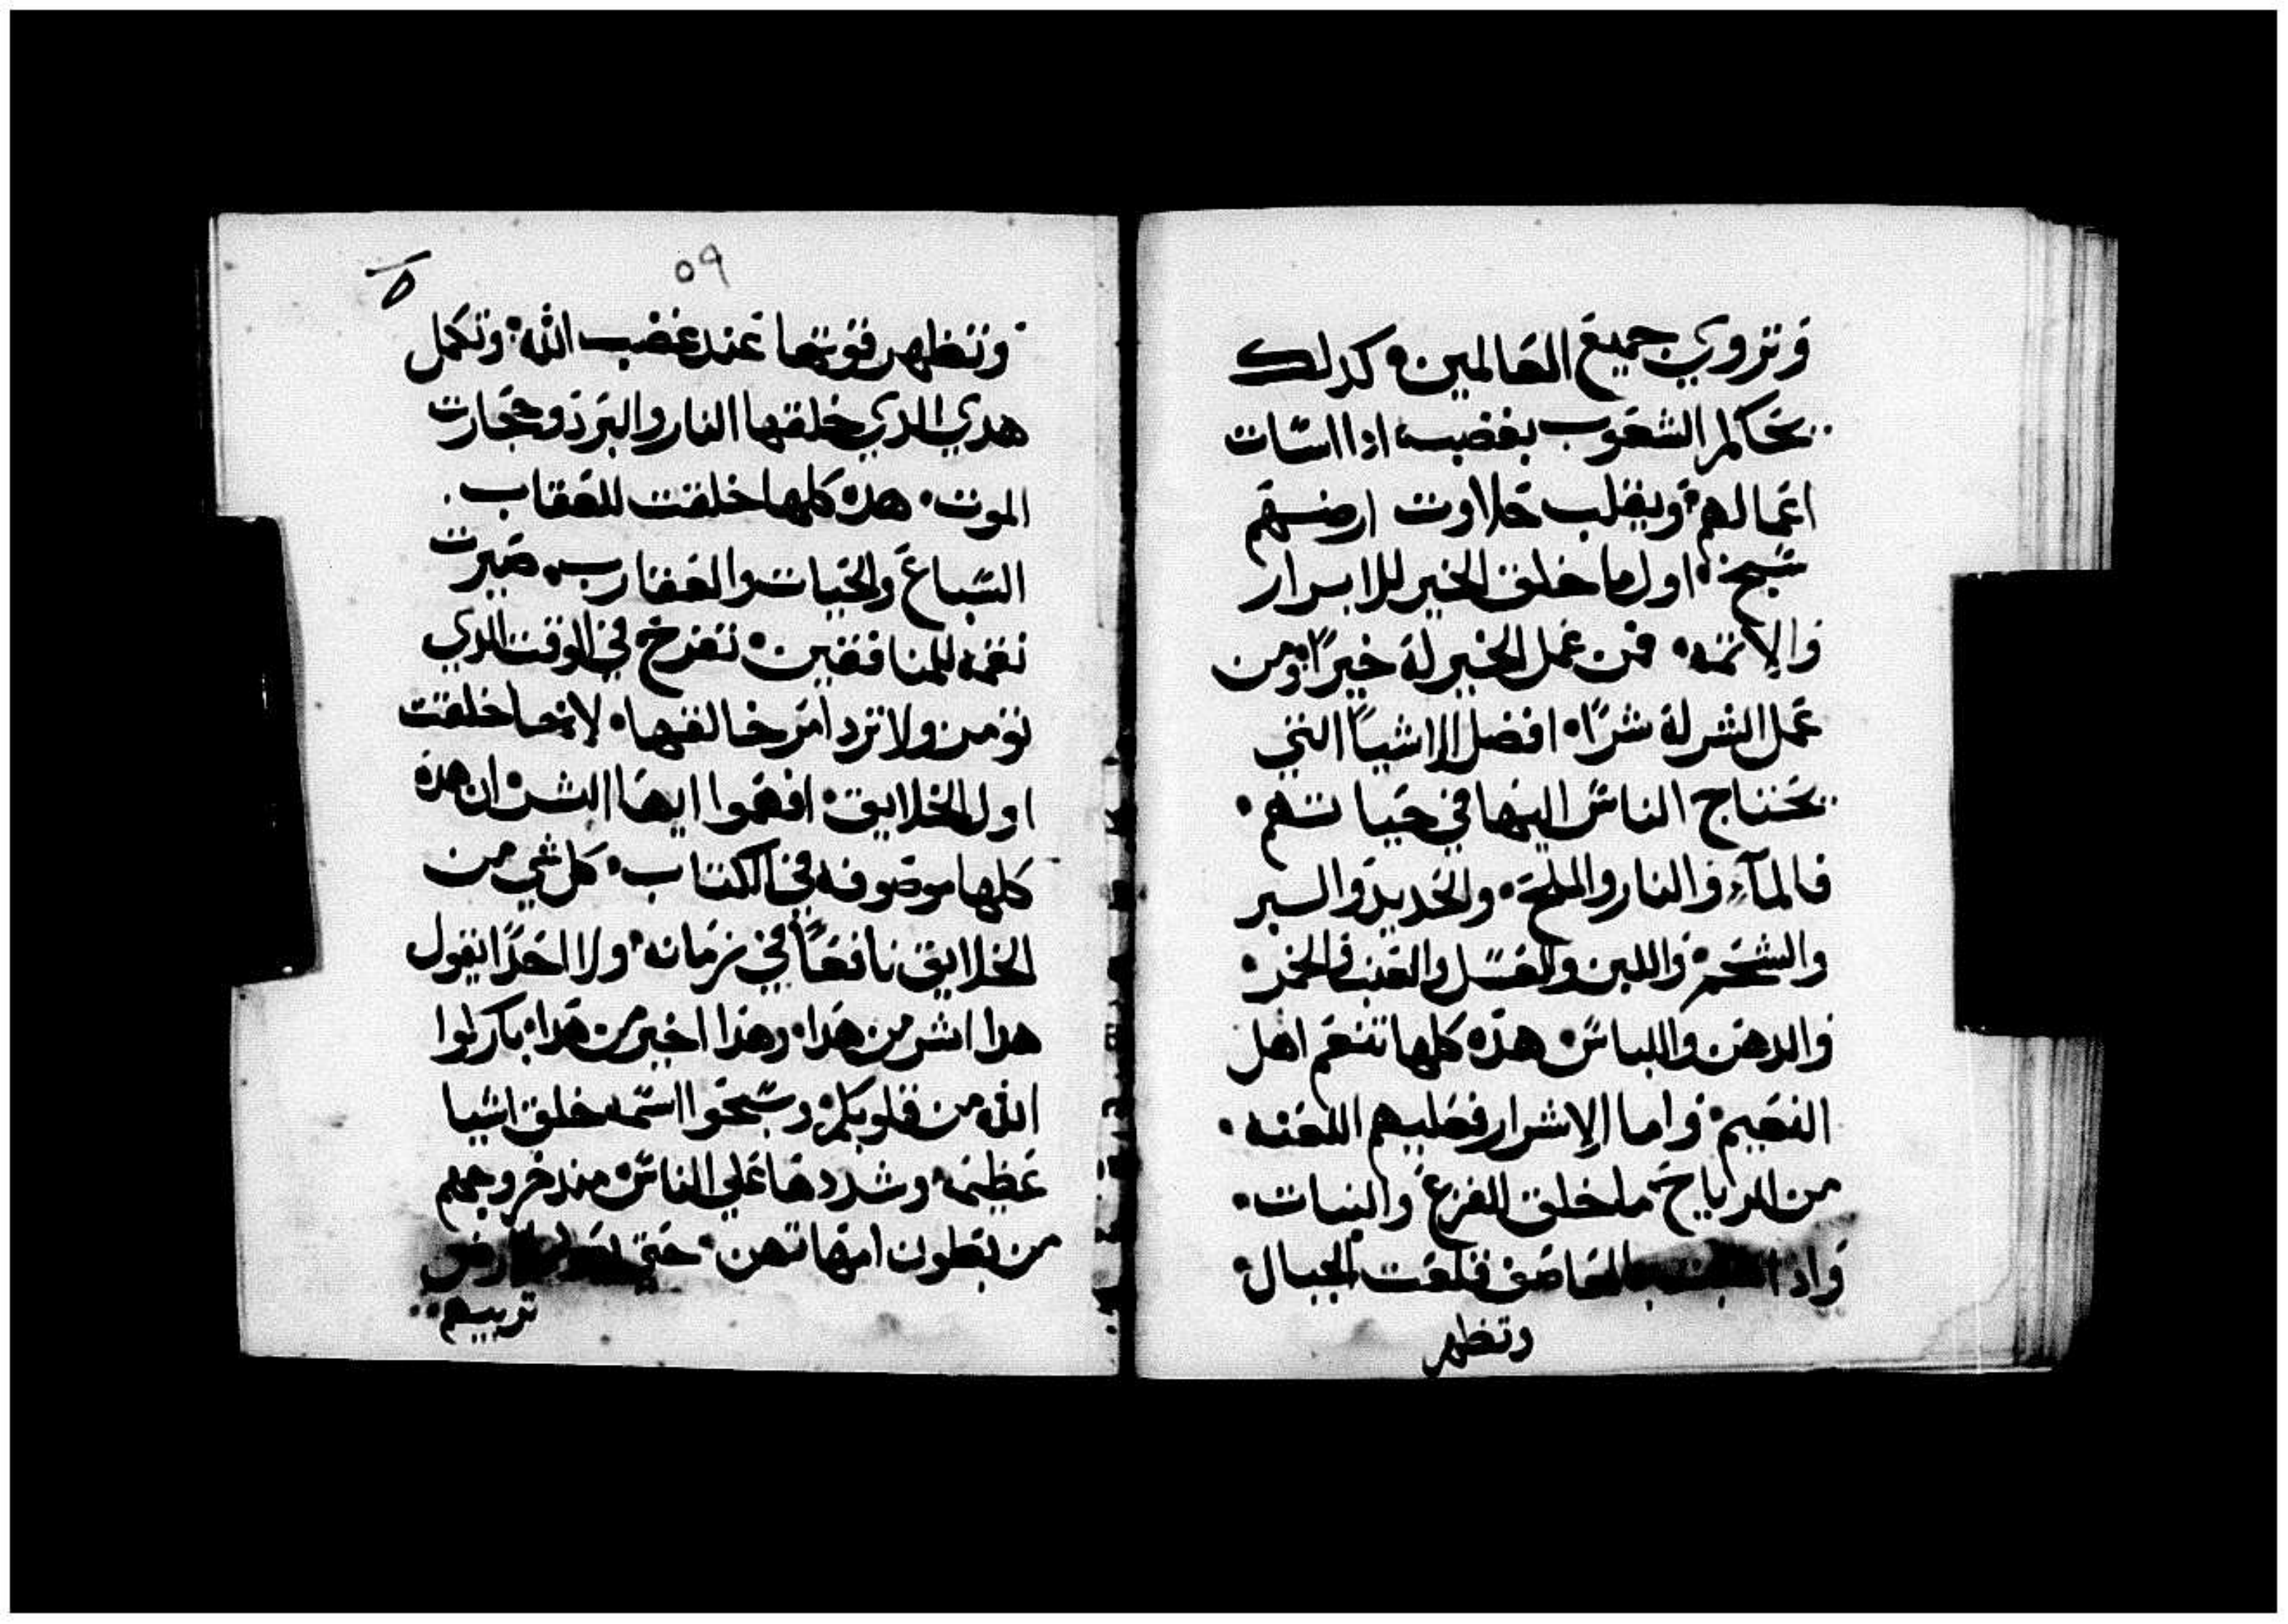 وتروي جميع العالمين كدلك
يحاكم الشعوب بغضبه ادا اسات
اعمالهم ويقلب حلاوت ارضهم
سبخه اول ما خلق الخير للابرار
والاتمه فمن عمل الخير له خيرًا ومن
عمل الشر له شرًا افضل الاشيا التي
يحتاج الناس اليها في حياتهم
فالمآء والنار والملح والحديد والبر
والشحم واللبن والعسل والعنب والخمر
والدهن واللباس هده كلها تنعم اهل
النعيم واما الاشرار فعليهم اللعنه
من الرياح ما خلق الفزع والنبات
واذا العاصف قلعت الجبال
وتظهر
٥٩
وتظهر قوتها عند غضب الله وتكمل
هدي الدي خلقها النار والبرد وحجارت
الموت هده كلها خلقت للعقاب
السباع والحيات والعقارب صيرت
نقمه للمنافقين تفرح في الوقت الدي
تومن ولا ترد امر خالقها لانها خلقت
اول الخلايق افهموا ايها البشر ان هده
كلها موصوفه في الكتاب كل شي من
الخلايق نافعًا في زمانه ولا احدًا يقول
هدا اشر من هدا وهدا اخير من هدا باركوا
الله من قلوبكم وسبحوا اسمه خلق اشيا
عظيمه وشددها علي الناس مند خروجهم
من بطون امهاتهن حتي
تربيهم